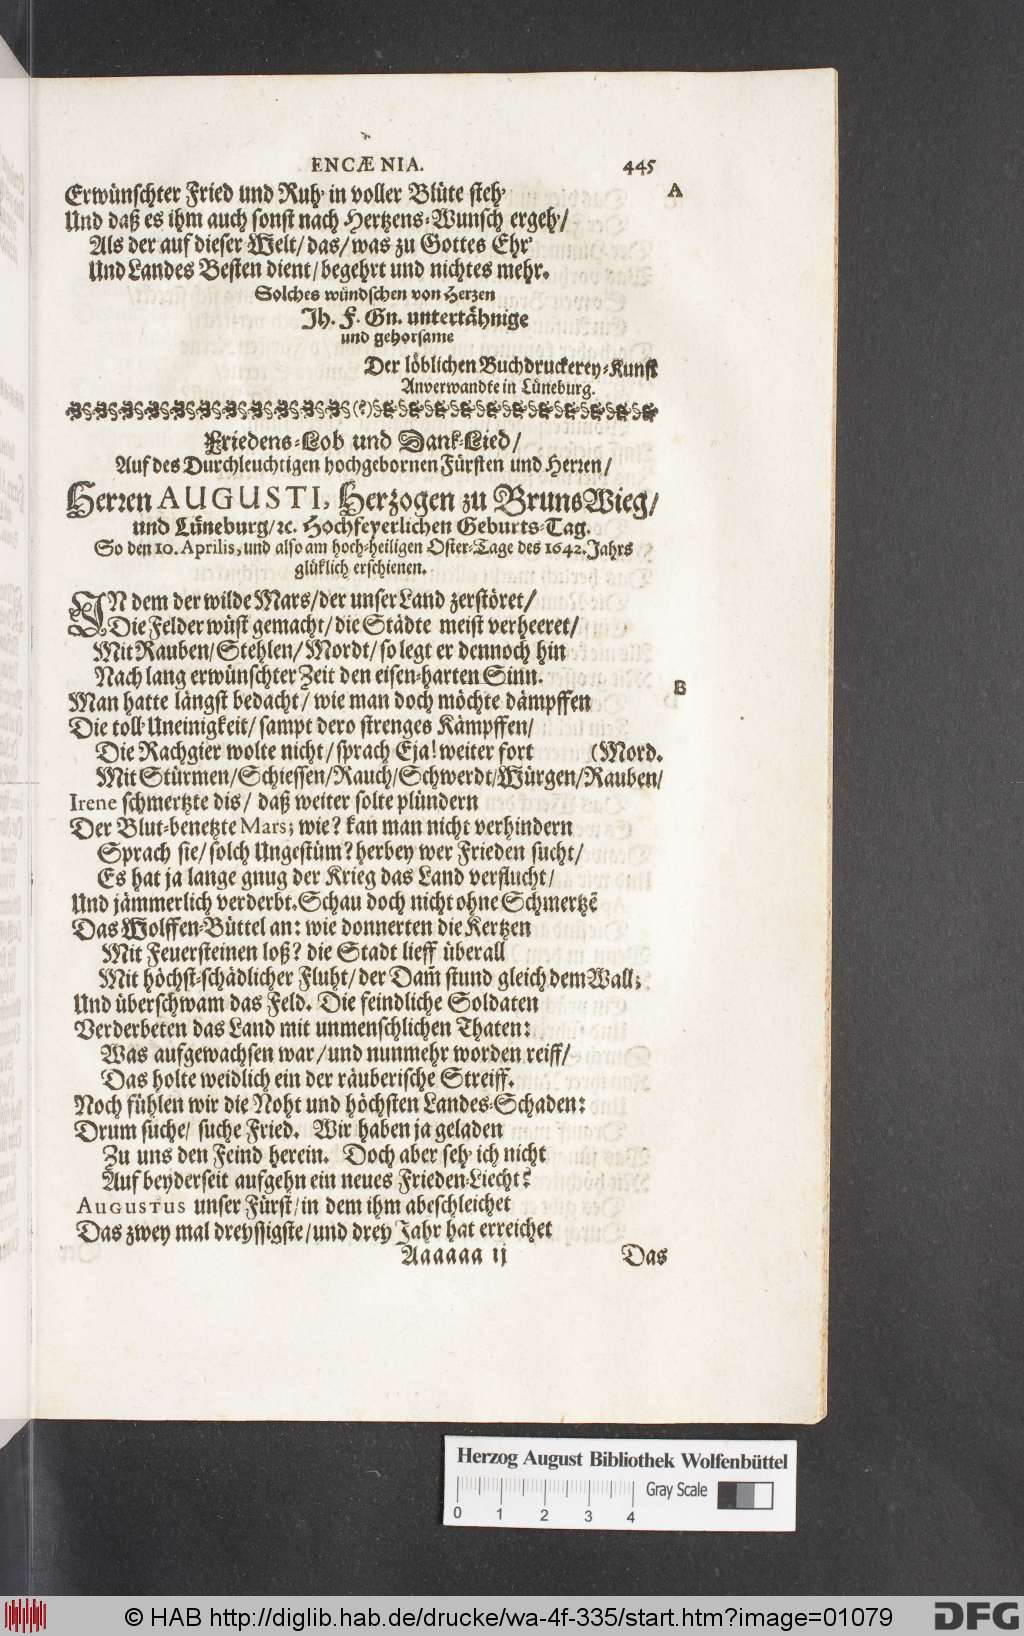 ENCÆNIA. 445
Erwünschter Fried und Ruh' in voller Blüte steh' A
Und daß es ihm auch sonst nach Hertzens-Wunsch ergeh'/
Als der auf dieser Welt/ das/ was zu Gottes Ehr'
Und Landes Besten dient/ begehrt und nichtes mehr.
Solches wündschen von Herzen
Ih. F. Gn. untertähnige
und gehorsame
Der löblichen Buchdruckerey-Kunst
Anverwandte in Lüneburg.
(?)
Friedens-Lob und Dank-Lied/
Auf des Durchleuchtigen hochgebornen Fürsten und Herren/
Herren AUGUSTI, Herzogen zu BrunsWieg/
und Lüneburg/ ꝛc. Hochfeyerlichen Geburts-Tag.
So den 10. Aprilis, und also am hoch-heiligen Oster-Tage des 1642. Jahrs
glüklich erschienen.
IN dem der wilde Mars/ der unser Land zerstöret/
Die Felder wüst gemacht/ die Städte meist verheeret/
Mit Rauben/ Stehlen/ Mordt/ so legt er dennoch hin
Nach lang erwünschter Zeit den eisen-harten Sinn.
B
Man hatte längst bedacht/ wie man doch möchte dämpffen
Die toll' Uneinigkeit/ sampt dero strenges Kämpffen/
Die Rachgier wolte nicht/ sprach Eja! weiter fort (Mord.
Mit Stürmen/ Schiessen/ Rauch/ Schwerdt/ Würgen/ Rauben/
Irene schmertzte dis/ daß weiter solte plündern
Der Blut-benetzte Mars; wie? kan man nicht verhindern
Sprach sie/ solch Ungestüm? herbey wer Frieden sucht/
Es hat ja lange gnug der Krieg das Land verflucht/
Und jämmerlich verderbt. Schau doch nicht ohne Schmertzẽ
Das Wolffen-Büttel an: wie donnerten die Kertzen
Mit Feuersteinen loß? die Stadt lieff überall
Mit höchst-schädlicher Fluht/ der Dam̃ stund gleich dem Wall;
Und überschwam das Feld. Die feindliche Soldaten
Verderbeten das Land mit unmenschlichen Thaten:
Was aufgewachsen war/ und nunmehr worden reiff/
Das holte weidlich ein der räuberische Streiff.
Noch fühlen wir die Noht und höchsten Landes-Schaden:
Drum suche/ suche Fried. Wir haben ja geladen
Zu uns den Feind herein. Doch aber seh' ich nicht
Auf beyderseit aufgehn ein neues Frieden-Liecht?
AUGUSTUS unser Fürst/ in dem ihm abeschleichet
Das zwey mal dreyssigste/ und drey Jahr hat erreichet
Aaaaaa ij Das
Herzog August Bibliothek Wolfenbüttel
Gray Scale
0 1 2 3 4
© HAB http://diglib.hab.de/drucke/wa-4f-335/start.htm?image=01079 DFG